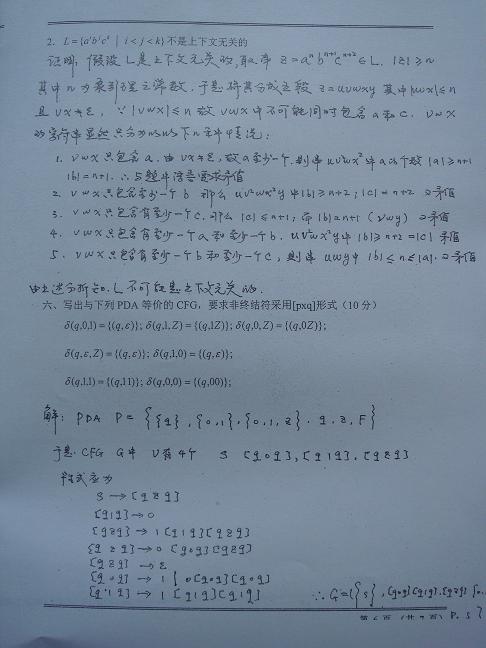 2. L={aⁱbʲcᵏ | i<j<k}不是上下文无关的
证明: 假设L是上下文无关的, 取串 z=aⁿbⁿ⁺¹cⁿ⁺²∈L. |z|≥n
其中n为泵引理之常数. 于是将其分成五段 z=uvwxy 其中|vwx|≤n
且 vx≠ε, ∵|vwx|≤n 故 vwx中不可能同时包含a和c. vwx
的字符串显然只分为以下n五中情况:
1. vwx只包含a. 由vx≠ε, 故a至少一个. 则串uv²wx²y中a的个数|a|≥n+1
|b|=n+1. ∴与题中语言要求矛盾
2. vwx只包含至少一个b 那么 uv²wx²y中|b|≥n+2; |c|=n+2 矛盾
3. vwx只包含有至少一个c. 那么 |c|≤n+1; 而|b|=n+1 (uwy) 矛盾
4. vwx只包含有至少一个a和至少一个b. uv²wx²y中|b|≥n+2=|c| 矛盾
5. vwx只包含有至少一个b和至少一个c, 则串uwy中|b|≤n≤|a|. 矛盾
由上述分析知. L不可能是上下文无关的.
六、写出与下列 PDA 等价的 CFG，要求非终结符采用[pxq]形式（10 分）
δ(q,0,1)={(q,ε)}; δ(q,1,Z)={(q,1Z)}; δ(q,0,Z)={(q,0Z)};
δ(q,ε,Z)={(q,ε)}; δ(q,1,0)={(q,ε)};
δ(q,1,1)={(q,11)}; δ(q,0,0)={(q,00)};
解: PDA P={{q},{0,1},{0,1,Z}. q. Z, F}
于是 CFG G中 V有4个 S [q0q],[q1q].[qZq]
程式应为
S→[qZq]
[q1q]→0
[qZq]→1[q1q][qZq]
[qZq]→0[q0q][qZq]
[qZq]→ε
[q0q]→1 | 0[q0q][q0q]
[q1q]→1[q1q][q1q]
∴G=({S},[q0q][q1q].[qZq]
第 6 页 (共 7 页) P.